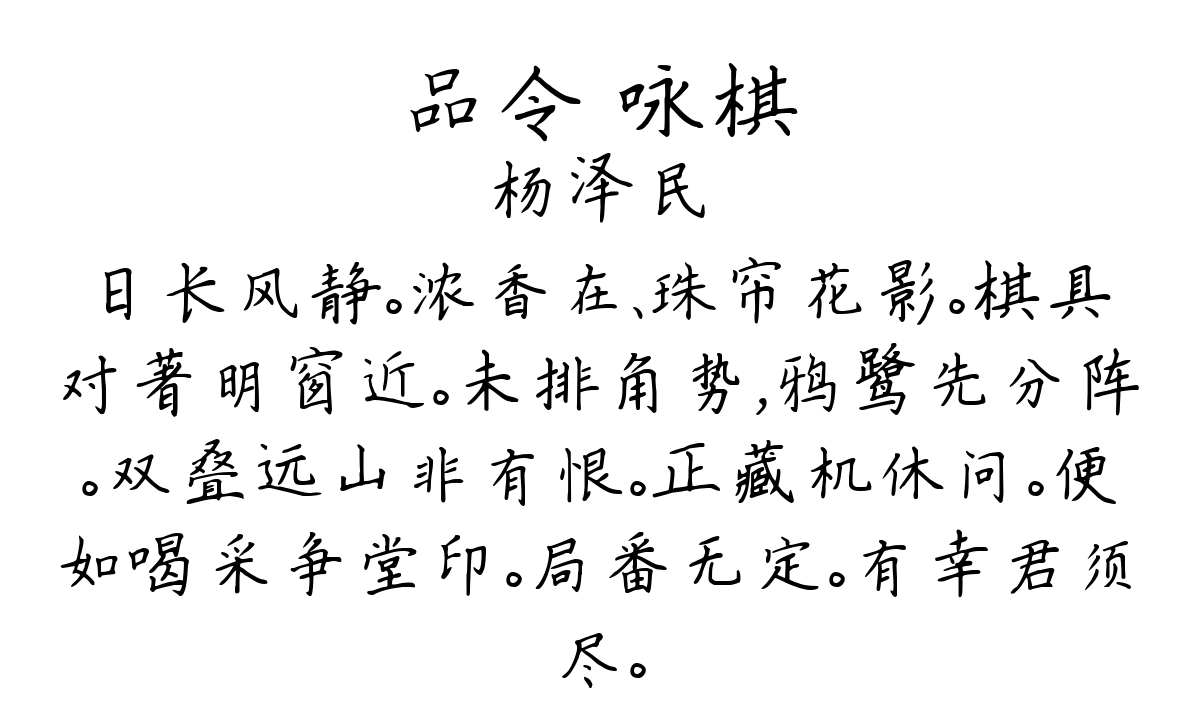 品令 咏棋
杨泽民
日长风静。浓香在、珠帘花影。棋具
对著明窗近。未排角势,鸦鹭先分阵
。双叠远山非有恨。正藏机休问。便
如喝采争堂印。局番无定。有幸君须
尽。